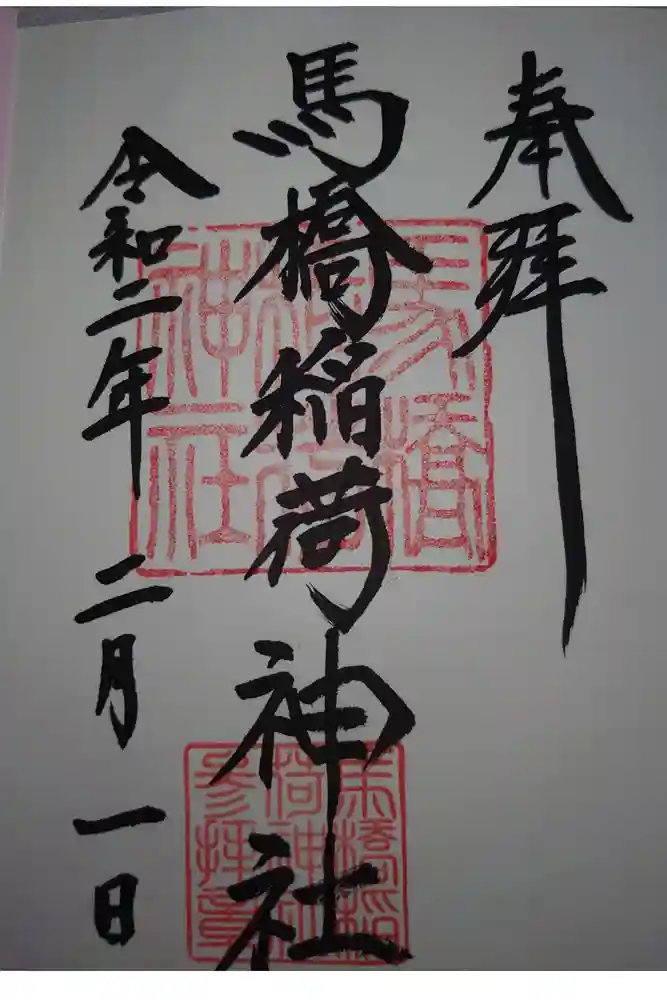 奉拝
馬橋稲荷神社
令和二年 二月 一日
馬橋稲荷神社
馬橋稲荷神社参拝章